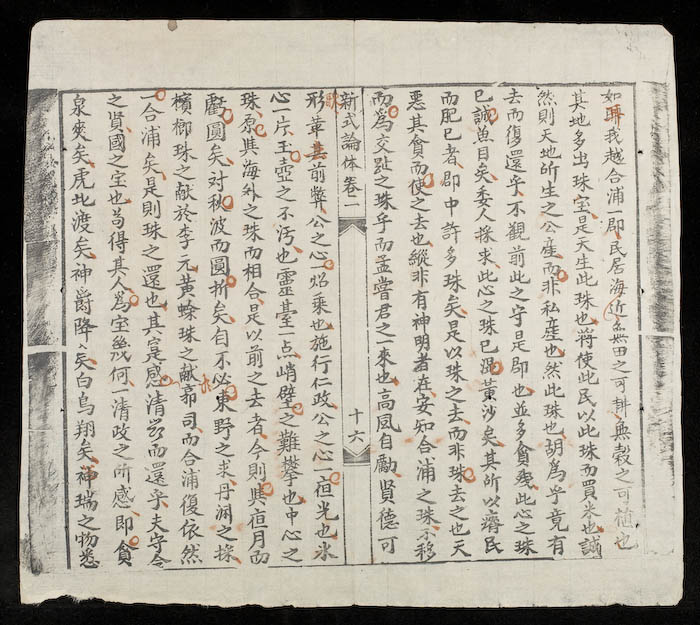 如聃我越合浦一郡民居海近無田之可耕無穀之可植也
其地多出珠宝是天生此珠也將使此民以此珠而買米也誠
然則天地所生之公産而非私産也然此珠也胡為乎竟有
去而復還乎不觀前此之守是郡也並多貪殘此心之珠
已誠魚目矣委人採求此心之珠已混黃沙矣其所以濟民
而肥已者郡中許多珠矣是以珠之去而非珠去之也天
惡其貪而使之去也縱非有神明者在安知合浦之珠不移
而為交趾之珠乎而孟嘗君之一來也高風自勵賢德可
新式論体卷二
十六
形革其前弊公之心一炤乗也施行仁政公之心一夜光也氷
心一片玉壺之不汚也靈臺一点峭壁之難攀也中心之
珠原其海外之珠而相合是以前之去者今則其夜月而
爵圓矣対秋波而圓折矣自不必東野之求丹渊之採
檳榔珠之献於李元黄蜍珠之献郭司而合浦復依然
一合浦矣是則珠之還也其寔感清節而還乎夫守令
之賢國之宝也苟得其人為宝幾何清政之所感即貪
泉爽矣虎北渡矣神爵降矣白烏翔矣神瑞之物悉